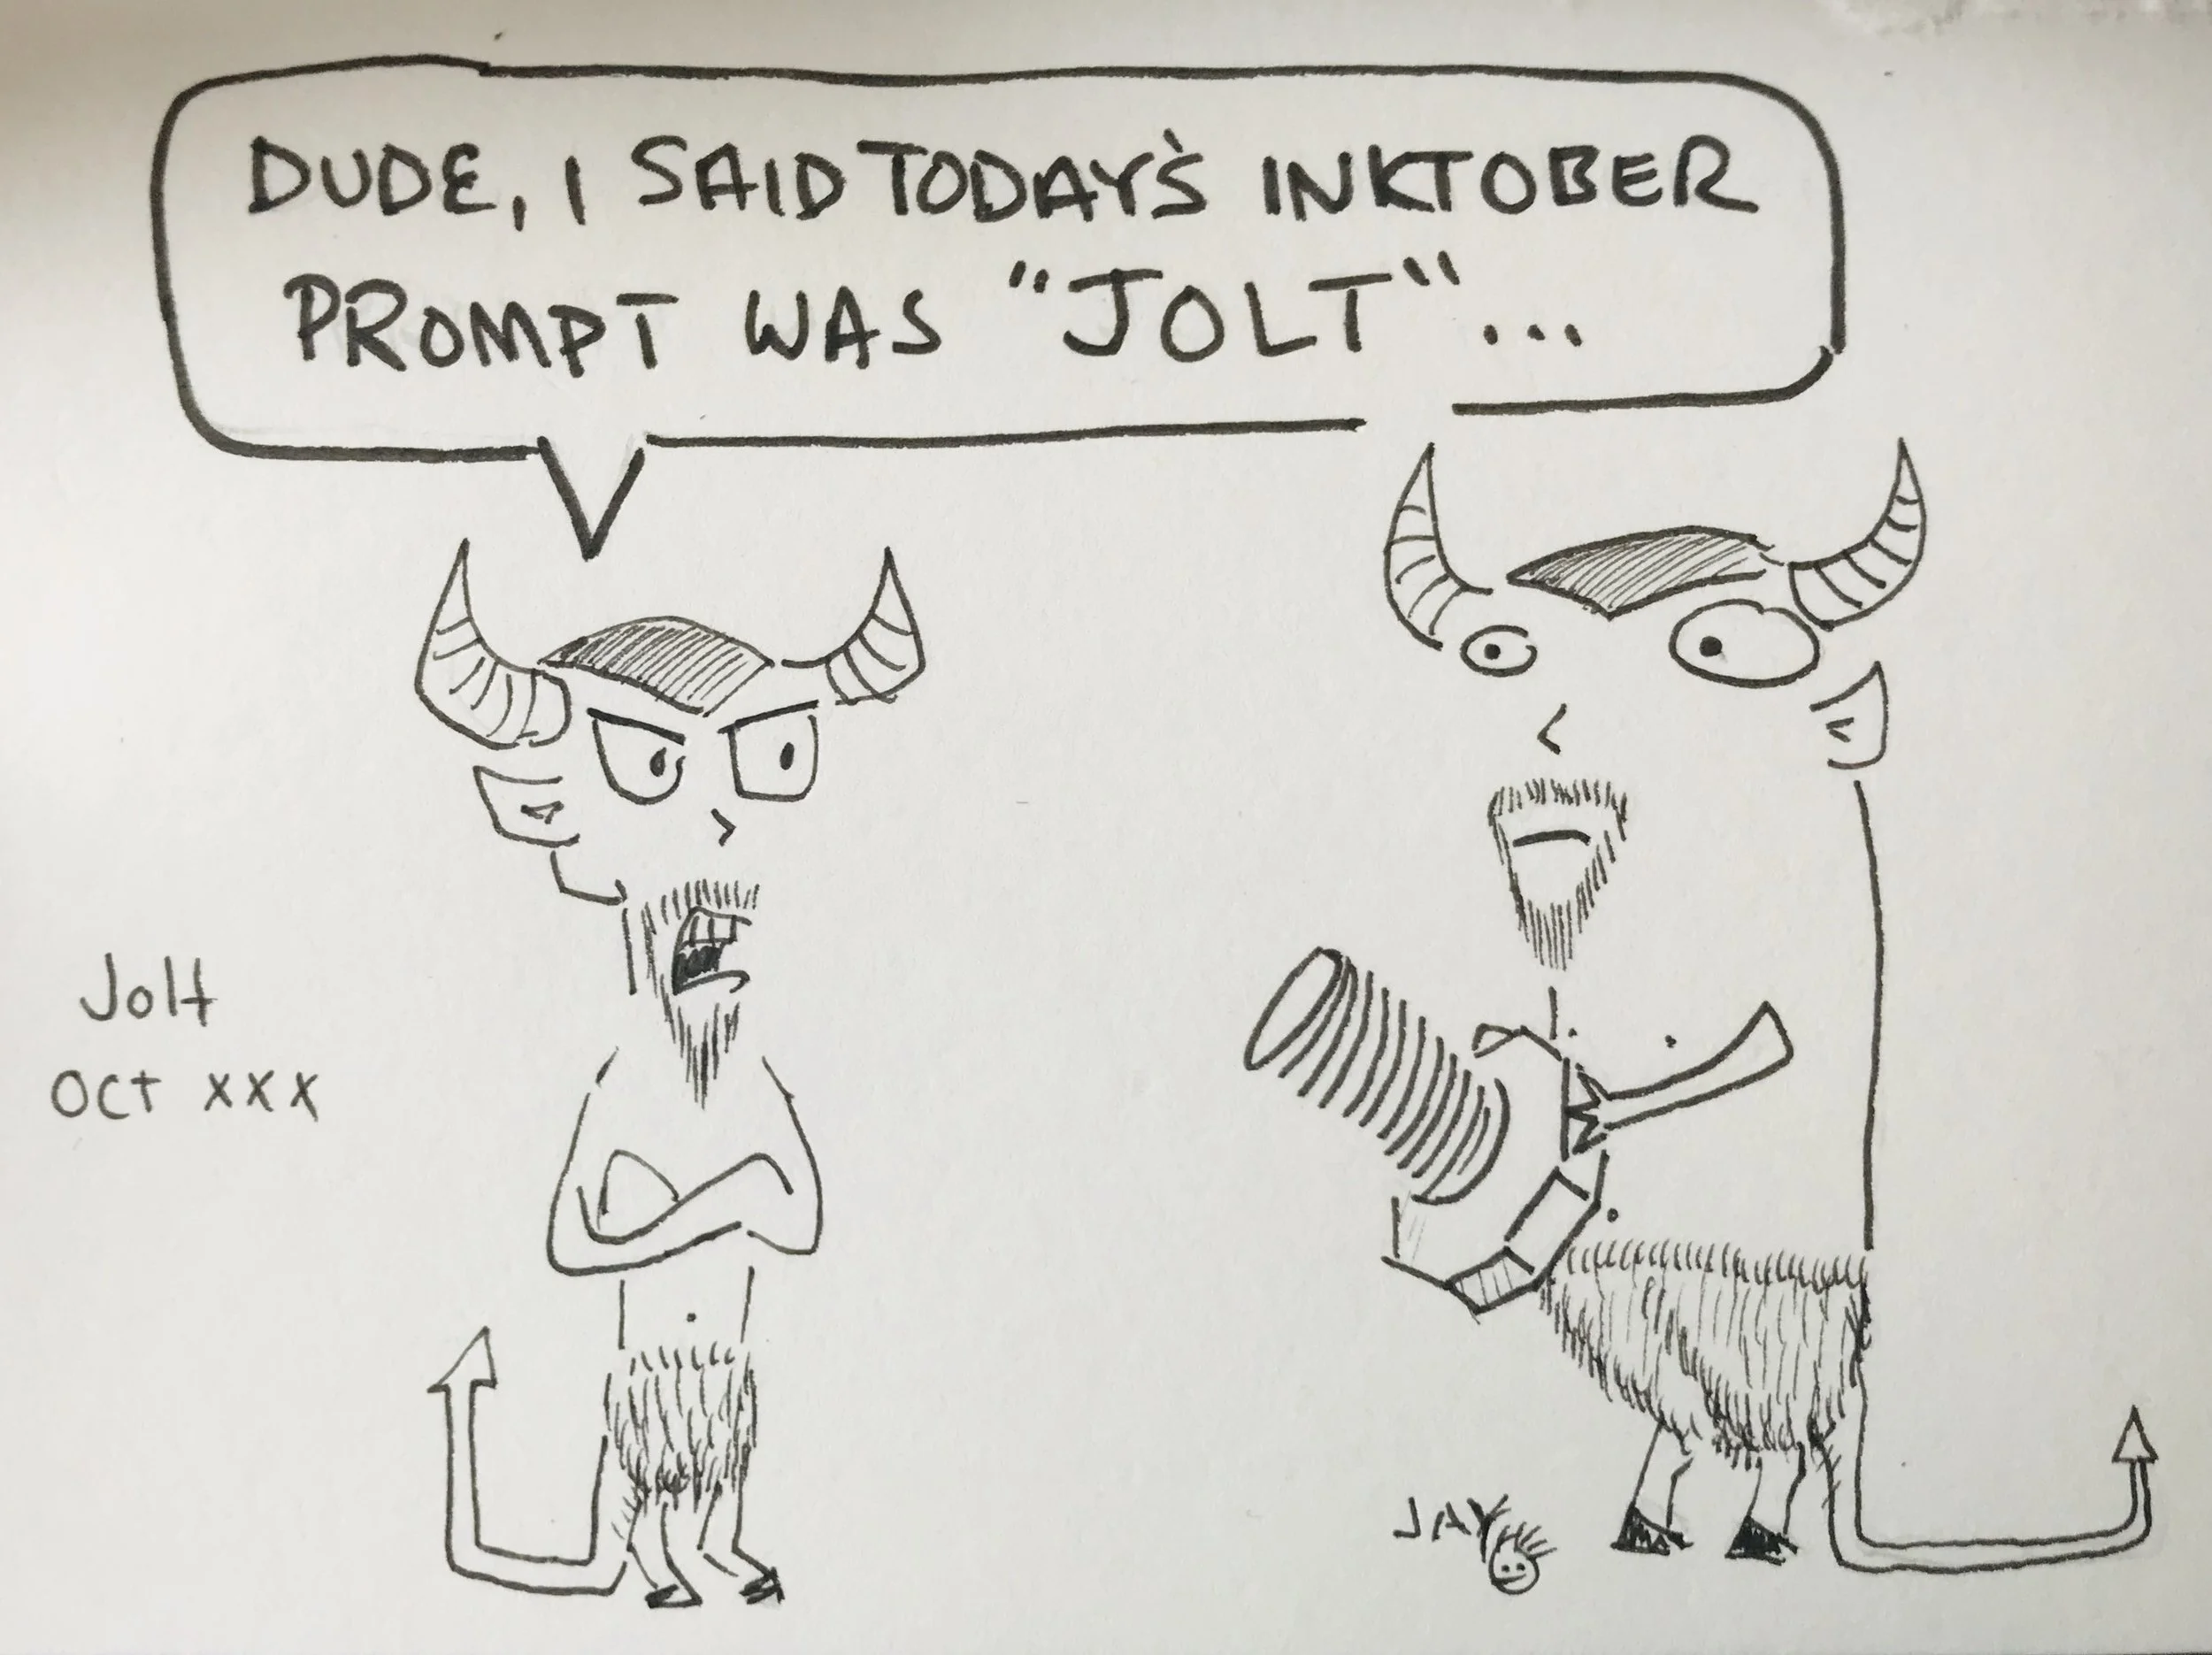 DUDE, I SAID TODAY'S INKTOBER
PROMPT WAS "JOLT"...
Jolt
OCT XXX
JAY